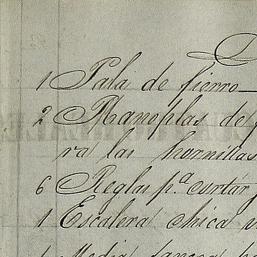 1 Pala de fierro
2 Manoplas de f
ra las hornillas
6 Reglas p.ª cortar
1 Escalera chica
1 Media fanega